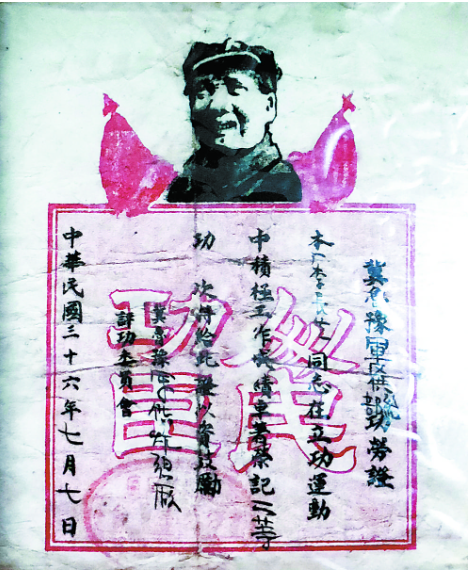 冀魯豫軍区供給部功勞證
本厂李同志在立功運動
中積極工作成績卓著榮記二等
功一次特給此證以資鼓勵
冀魯豫供廠
評功委員會
中華民國三十六年七月七日
人民
功臣